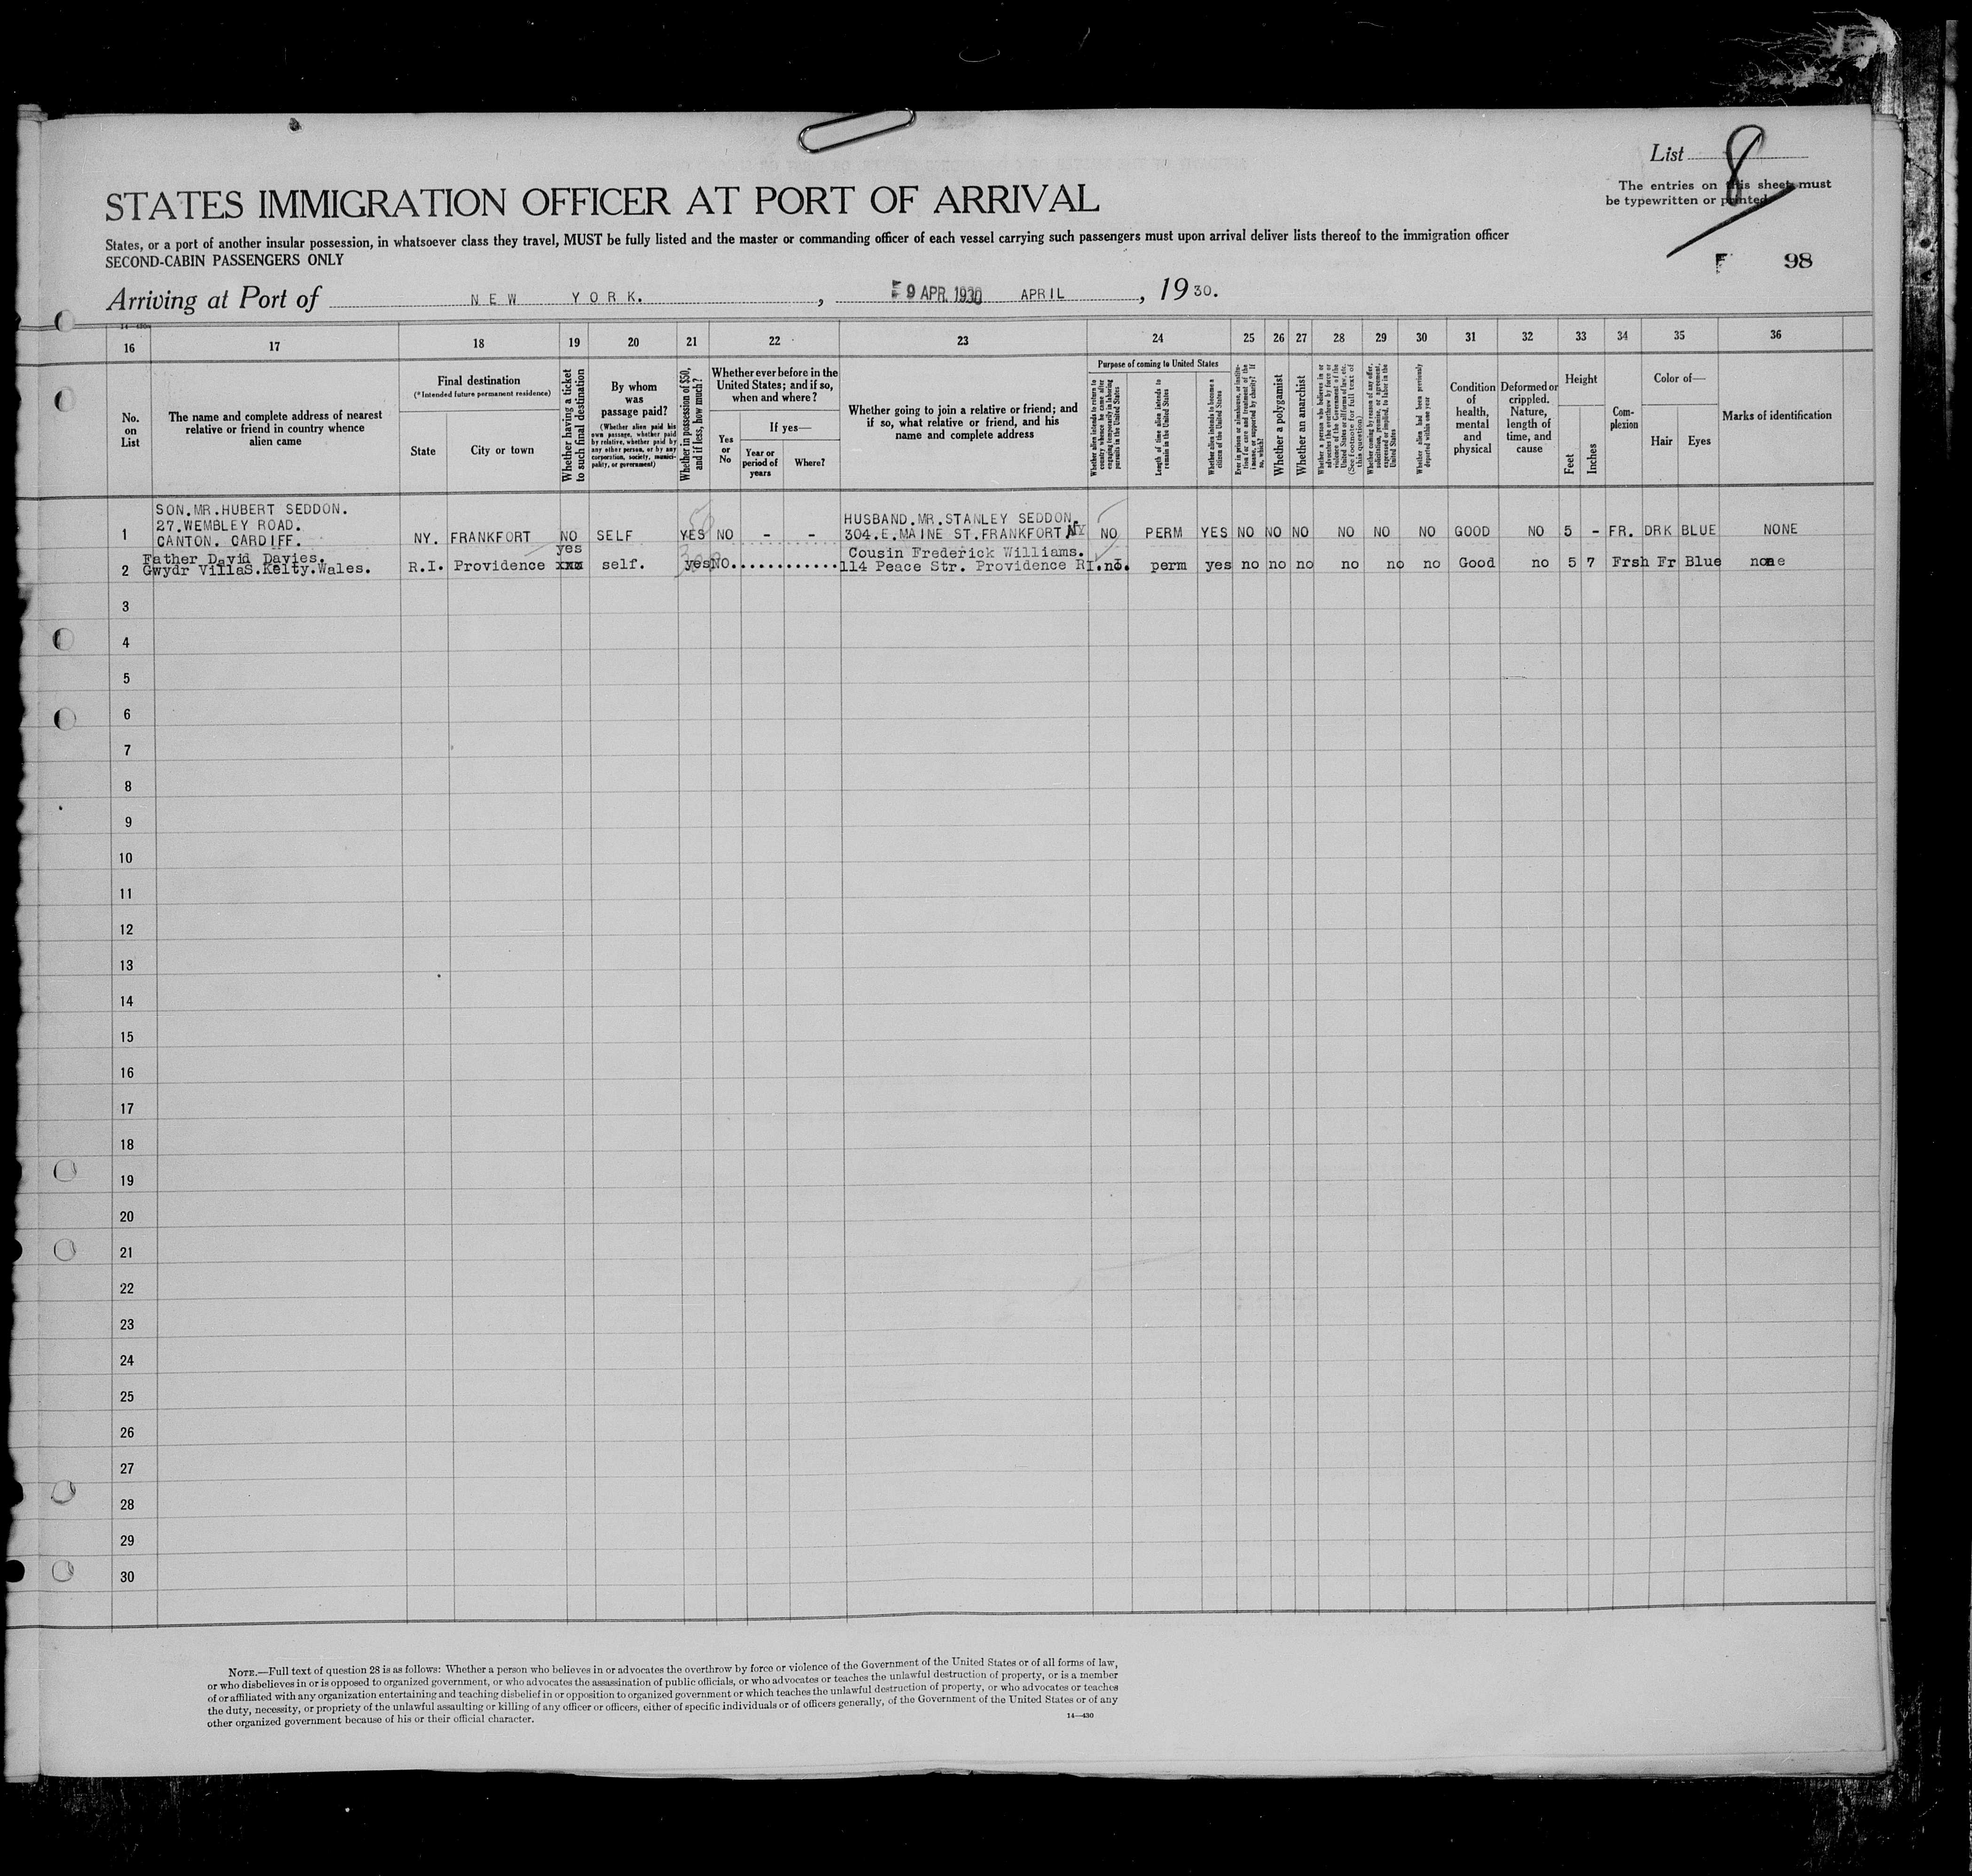 List 8
The entries on this sheet must
be typewritten or printed
STATES IMMIGRATION OFFICER AT PORT OF ARRIVAL
States, or a port of another insular possession, in whatsoever class they travel, MUST be fully listed and the master or commanding officer of each vessel carrying such passengers must upon arrival deliver lists thereof to the immigration officer
SECOND-CABIN PASSENGERS ONLY
98
Arriving at Port of NEW YORK. , 9 APR. 1930 APRIL , 1930.
14—430
16 17 18 19 20 21 22 23 24 25 26 27 28 29 30 31 32 33 34 35 36
No. on List
The name and complete address of nearest relative or friend in country whence alien came
Final destination
(* Intended future permanent residence)
State
City or town
Whether having a ticket to such final destination
By whom was passage paid?
(Whether alien paid his own passage, whether paid by relative, whether paid by any other person, or by any corporation, society, municipality, or government)
Whether in possession of $50, and if less, how much?
Whether ever before in the United States; and if so, when and where?
Yes or No
If yes—
Year or period of years
Where?
Whether going to join a relative or friend; and if so, what relative or friend, and his name and complete address
Purpose of coming to United States
Whether alien intends to return to country whence he came after engaging temporarily in laboring pursuits in the United States
Length of time alien intends to remain in the United States
Whether alien intends to become a citizen of the United States
Ever in prison or almshouse, or institution for care and treatment of the insane, or supported by charity? If so, which?
Whether a polygamist
Whether an anarchist
Whether a person who believes in or advocates the overthrow by force or violence of the Government of the United States or all forms of law, etc. (See footnote for full text of this question)
Whether coming by reason of any offer, solicitation, promise, or agreement, expressed or implied, to labor in the United States
Whether alien had been previously deported within one year
Condition of health, mental and physical
Deformed or crippled. Nature, length of time, and cause
Height
Feet
Inches
Complexion
Color of—
Hair
Eyes
Marks of identification
SON.MR.HUBERT SEDDON.
27.WEMBLEY ROAD.
HUSBAND.MR.STANLEY SEDDON.
1 CANTON. CARDIFF. NY. FRANKFORT NO SELF YES 50 NO - - 304.E.MAINE ST.FRANKFORT.NY NO PERM YES NO NO NO NO NO NO GOOD NO 5 - FR. DRK BLUE NONE
Father David Davies. yes Cousin Frederick Williams.
2 Gwydr VillaS.Kelty.Wales. R.I. Providence xxx self. yes 300 NO............ 114 Peace Str. Providence RI. no. perm yes no no no no no no Good no 5 7 Frsh Fr Blue none
3
4
5
6
7
8
9
10
11
12
13
14
15
16
17
18
19
20
21
22
23
24
25
26
27
28
29
30
NOTE.—Full text of question 28 is as follows: Whether a person who believes in or advocates the overthrow by force or violence of the Government of the United States or of all forms of law,
or who disbelieves in or is opposed to organized government, or who advocates the assassination of public officials, or who advocates or teaches the unlawful destruction of property, or is a member
of or affiliated with any organization entertaining and teaching disbelief in or opposition to organized government or which teaches the unlawful destruction of property, or who advocates or teaches
the duty, necessity, or propriety of the unlawful assaulting or killing of any officer or officers, either of specific individuals or of officers generally, of the Government of the United States or of any
other organized government because of his or their official character.
14—430